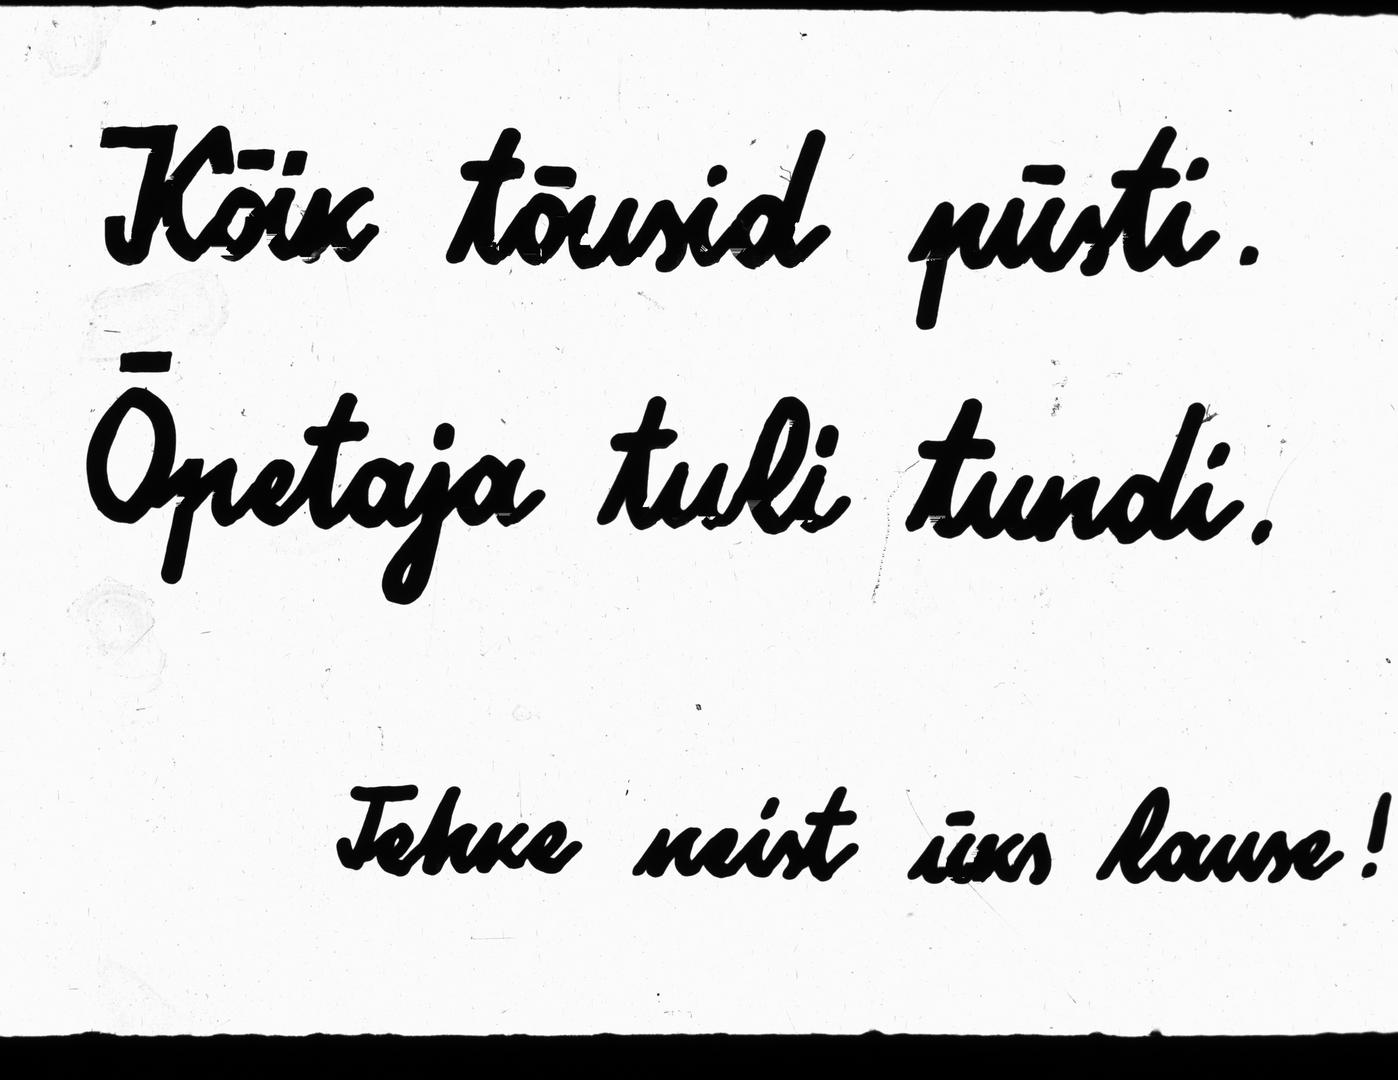 Kõik tõusid püsti.
Õpetaja tuli tundi.
Tehke neist üks lause!